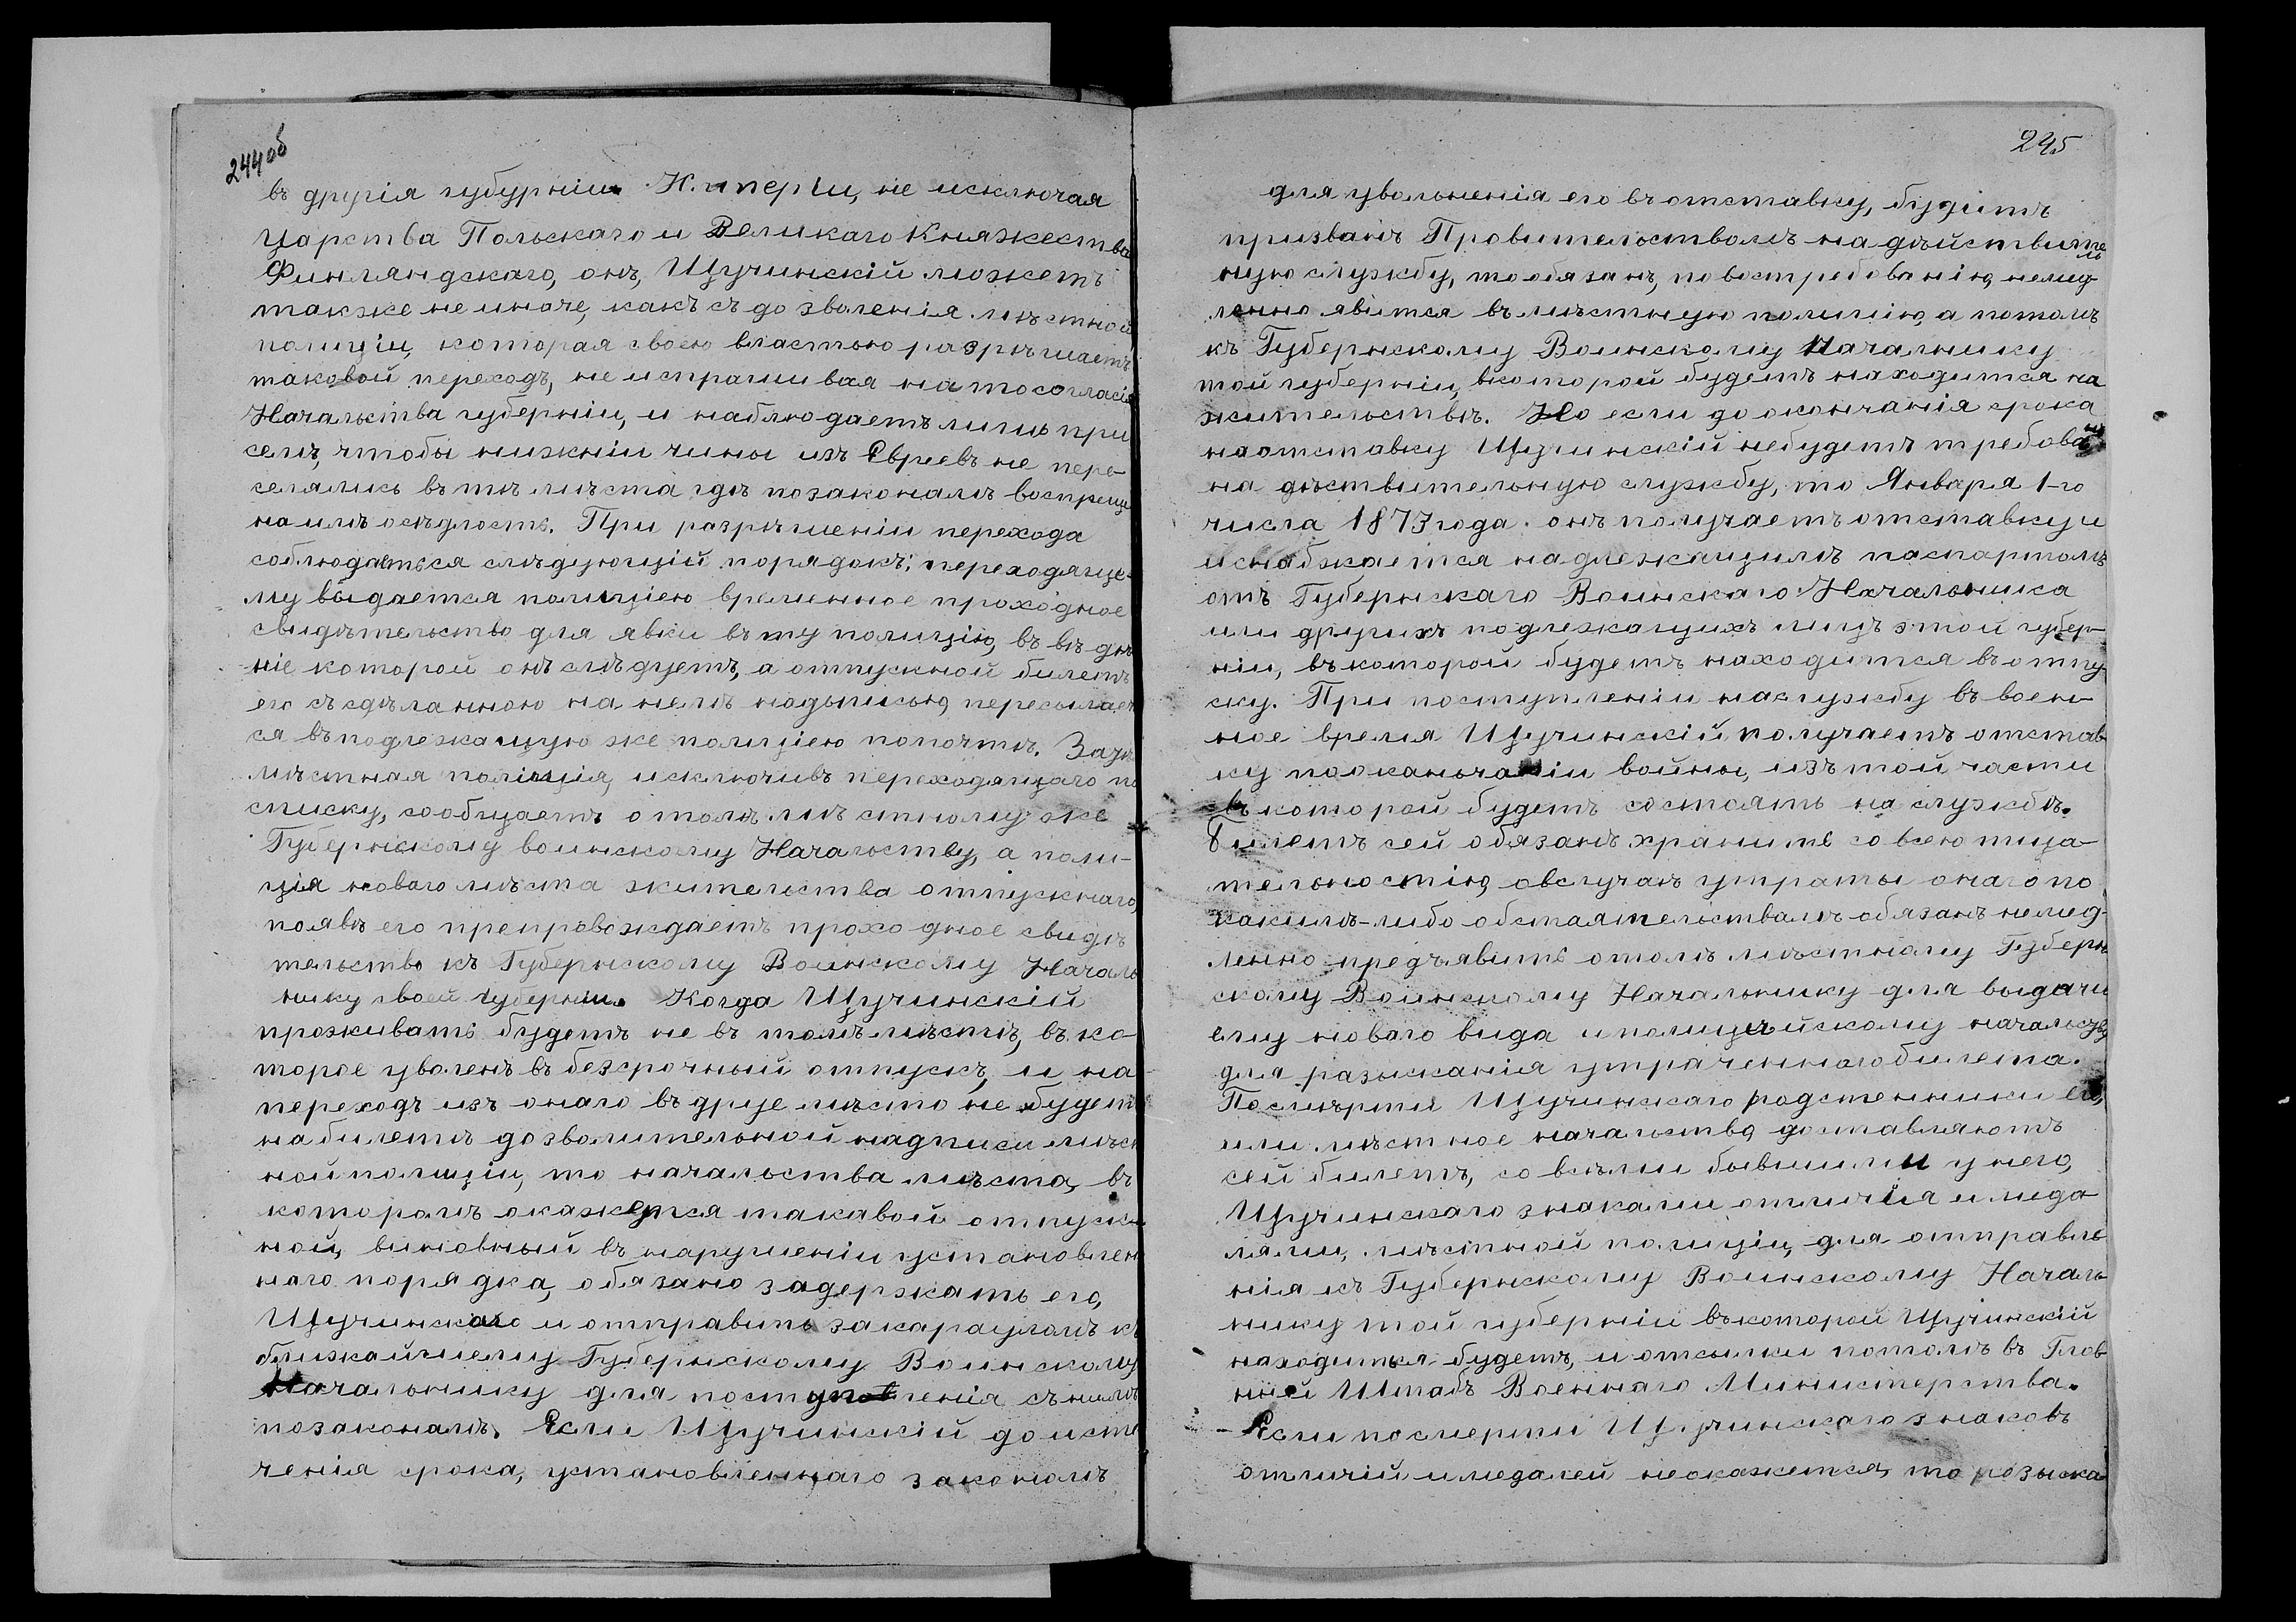 244 об
въ другія губурніи Имперіи, не исключая
Царства Польскаго и Великаго Княжества
Финляндскаго, онъ, Щучинскій можетъ
также не иначе, какъ съ дозволенія мѣстной
полиціи, которая своею властью разрѣшаетъ
таковой переходъ, не испрашивая на то согласія
Начальства губерніи, и наблюдаетъ лишь при
семъ, чтобы нижніи чины изъ Евреевъ не пере-
селялись въ тѣ мѣста гдѣ по законамъ воспреще
на имъ осѣдлость. При разрѣшеніи перехода
соблюдаеться слѣдующій порядокъ: переходяще-
му выдается полиціею временное проходное
свидѣтельство для явки въ ту полицію, въ вѣдѣ
ніе которой онъ слѣдуетъ, а отпускной билетъ
его съ сдѣланною на немъ надписью, пересылает
ся въ подлежащую же полиціею по почтѣ.
мѣстная полиція, исключивъ переходящаго по
списку, сообщаетъ о томъ мѣстному же
Губернскому воинскому Начальству, а поли-
ція новаго мѣста жительства отпускнаго,
по явкѣ его препровождаетъ проходное свидѣ
тельство къ Губернскому Воинскому Началь
нику своей губерніи. Когда Щучинскій
проживать будетъ не въ томъ мѣстѣ, въ ко-
торое уволенъ въ безсрочный отпускъ, и на
переходъ изъ онаго въ друге мѣсто не будетъ
на билетѣ дозволительной надписи мѣст
ной полиціи, то начальства мѣста, въ
которомъ окажется такавой отпуск
ной, виновный въ нарушеніи установлен
наго порядка, обязано задержать его,
Щучинскаго и отправить за карауломъ къ
ближайшему Губернскому Воинскому
Начальнику для поступленія съ нимъ
по законамъ. Если Щучинскій до исте
ченія срока, установленнаго закономъ
245
для увольненія его въ отставку, будетъ
призванъ Правительствомъ на дѣйствитель
ную службу, то обязанъ, по востребованію, немед-
ленно явится въ мѣстную полицію, а потомъ
къ Губернскому Воинскому Начальнику
той губерніи, въ которой будетъ находится на
жительствѣ. Но если до окончанія срока
на отставку Щучинскій небудетъ требован
на дѣствительную службу, то Января 1-го
числа 1873 года онъ получаетъ отставку и
и снабжается надлежащимъ паспартомъ
отъ Губернскаго Воинскаго Начальника
или другихъ подлежащихъ лицъ этой губер-
ніи, въ которой будетъ находится въ отпу
ску. При поступленіи на службу въ воен-
ное время Щучинскій получаетъ отстав
ку по оканьчаніи войны, изъ той части
въ которой будетъ состоять на службѣ.
Билетъ сей обязанъ хранить со всею тща-
тельностію, а въ случаѣ утраты онаго по
какимъ-либо обстаятельствамъ обязанъ немед-
ленно предъявить о томъ мѣстному Губерн
скому Воинскому Начальнику для выдачи
ему новаго вида и полицейскому начальству
для разысканія утраченнаго билета.
По смерти Щучинскаго родственники его,
или мѣстное начальство доставляютъ
сей билетъ, со всѣми бывшими у него,
Щучинскаго знаками отличія и меда
лями, мѣстной полиціи, для отправле
нія къ Губернскому Воинскому Началь
нику той губерніи въ которой Щучинскій
находиться будетъ, и отсылки потомъ въ Глав
ный Штабъ Военнаго Министерства.
Если по смерти Щучинскаго знаковъ
отличій и медалей не окажется, то розыска